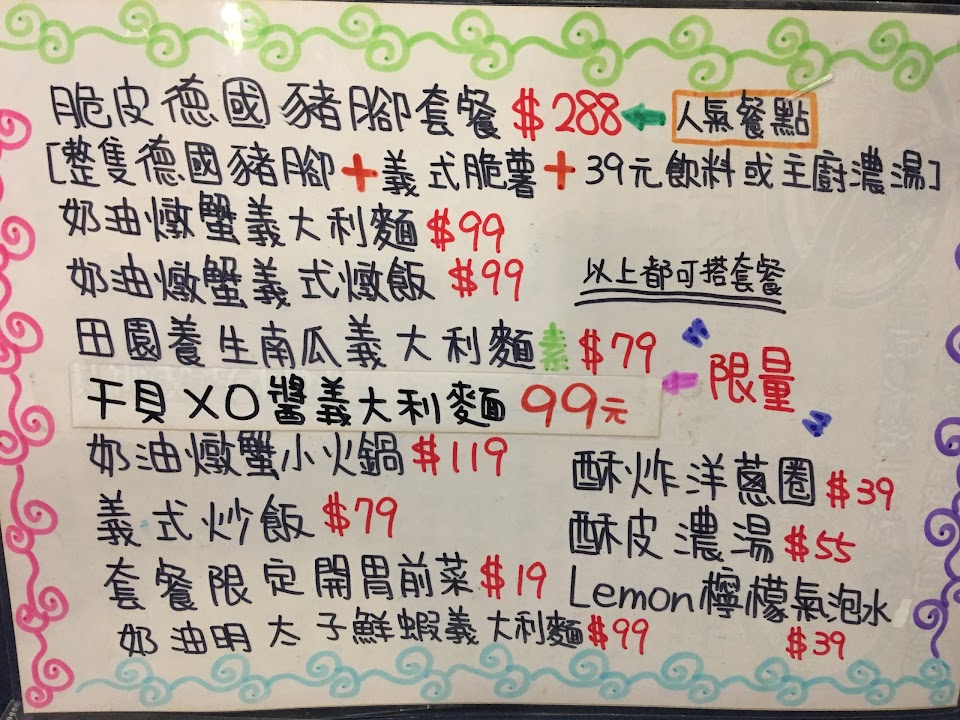 脆皮德國豬腳套餐 $288 人氣餐點
[整隻德國豬腳+義式脆薯+39元飲料或主廚濃湯]
奶油燉蟹義大利麵 $99
奶油燉蟹義式燉飯 $99
以上都可搭套餐
田園養生南瓜義大利麵 素 $79
干貝XO醬義大利麵 99元
"限量"
奶油燉蟹小火鍋 $119
義式炒飯 $79
套餐限定開胃前菜 $19
奶油明太子鮮蝦義大利麵 $99
酥炸洋蔥圈 $39
酥皮濃湯 $55
Lemon檸檬氣泡水
$39